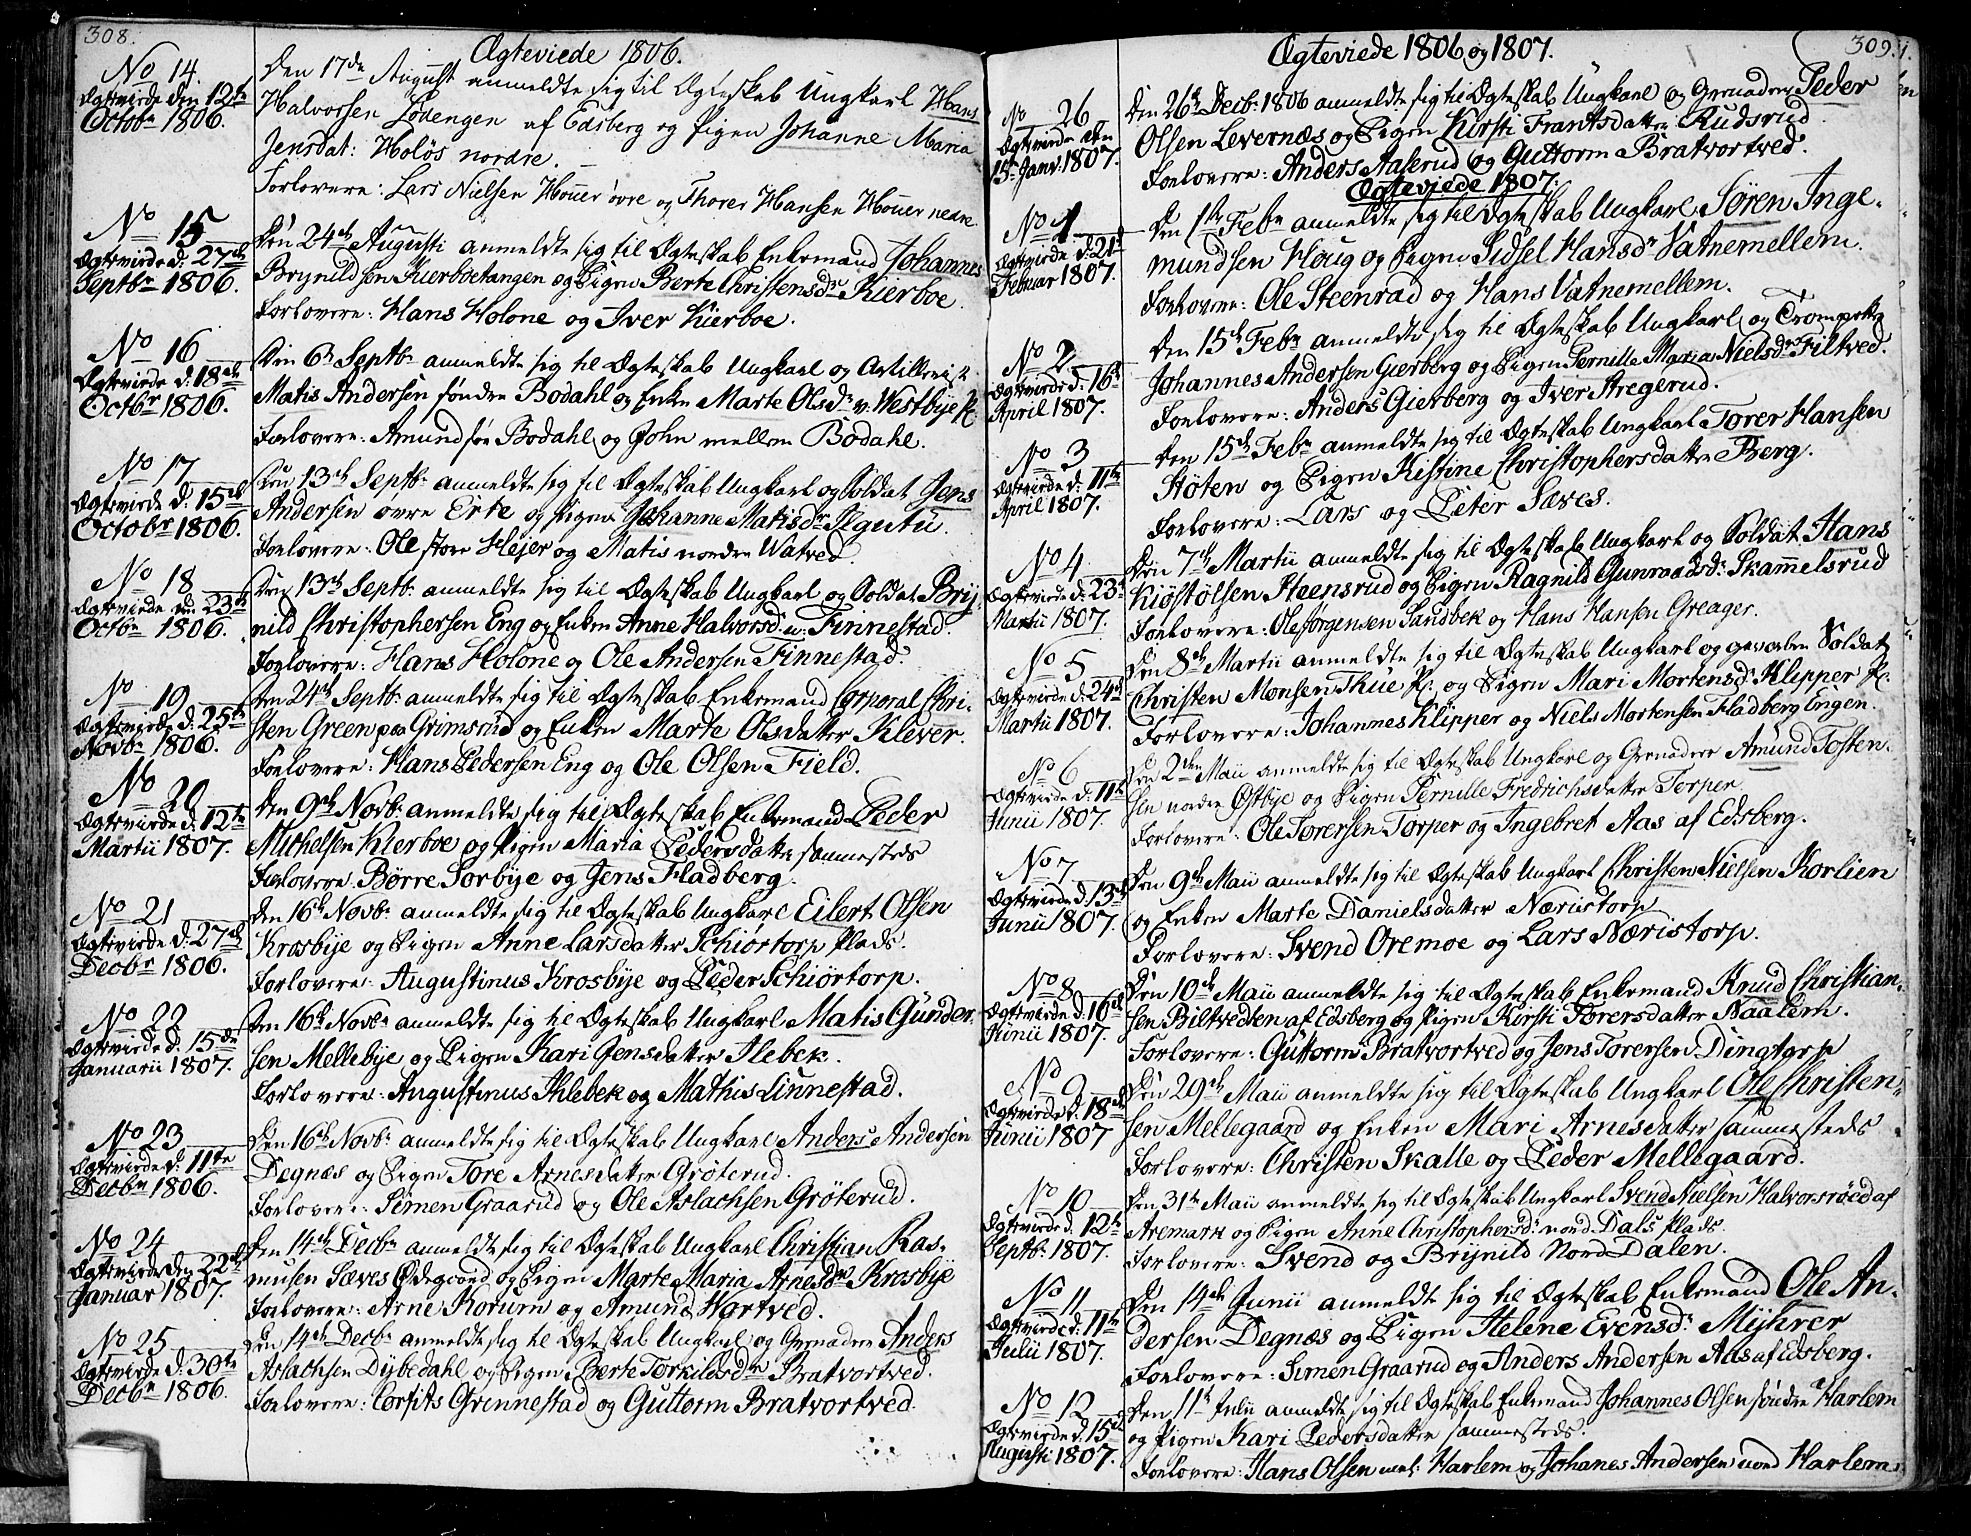 308.
Ægteviede 1806.
No 14.
Ægteviede den 12te
Octobr 1806.
Den 17de August anmeldte sig til Ægteskab Ungkarl Hans
Halvorsen Løvengen af Edsberg og Pigen Johanne Maria
Jensdat: Holøs nordre.
Forlovere: Lars Nielsen Houer øvre og Thorer Hansen Houer nedre
No 15
Ægteviede d: 27de
Septbr 1806.
Den 24de Augusti anmeldte sig til Ægteskab Enkemand Johannes
Brynildsen Kierboetangen og Pigen Berte Christensdr Kierboe.
Forlovere: Hans Holone og Iver Kierboe.
No 16
Ægteviede d: 18de
Octbr 1806.
Den 6te Septbr anmeldte sig til Ægteskab Ungkarl og Artillerist
Matis Andersen søndre Bodahl og Enke Marte Olsdr v: Westbye Pl.
Forlovere: Amund søe Bodahl og John mellem Bodahl.
No 17
Ægteviede d: 15de
Octobr 1806.
Den 13de Septbr anmeldte sig til Ægteskab Ungkarl og Soldat Jens
Andersen øvre Erte og Pigen Johanne Matisdr Ilgutu.
Forlovere: Ole store Hejer og Matis nordre Watved.
No 18
Ægteviede den 23de
Octbr 1806.
Den 13de Septbr anmeldte sig til Ægteskab Ungkarl og Soldat Bryn
nild Christophersen Eng og Enken Anne Halvorsd: Finnestad.
Forlovere: Hans Holone og Ole Andersen Finnestad.
No 19
Ægteviede d: 25de
Novbr 1806.
Den 24de Septbr anmeldte sig til Ægteskab Enkemand Corporal Chri-
sten Green paa Grimsrud og Enken Marte Olsdatter Klever.
Forlovere: Hans Pedersen Eng og Ole Olsen Field.
No 20
Ægteviede d: 12te
Martii 1807.
Den 9de Novbr anmeldte sig til Ægteskab Enkemand Peder
Michelsen Kierboe og Pigen Maria Pedersdatter sammesteds
Forlovere: Børre Sorbye og Jens Fladberg.
No 21
Ægteviede d: 27de
Decbr 1806.
Den 16de Novbr anmeldte sig til Ægteskab Ungkarl Eilert Olsen
Krosbye og Pigen Anne Larsdatter Schiørtorp Plads.
Forlovere: Augustinus Krosbye og Peder Schiørtorp.
No 22
Ægteviede d: 15de
Januarii 1807.
Den 16de Novbr anmeldte sig til Ægteskab Ungkarl Matis Gunder-
sen Mellebye og Pigen Kari Jensdatter Ilebek.
Forlovere: Augustinus Ihlebek og Mathis Linnestad.
No 23
Ægteviede d: 11te
Decbr 1806.
Den 16de Novbr anmeldte sig til Ægteskab Ungkarl Anders Andersen
Degnæs og Pigen Tore Arnesdatter Grøterud.
Forlovere: Simen Graarud og Ole Aslachsen Grøterud.
No 24
Ægteviede den 22de
Januar 1807.
Den 14de Decbr anmeldte sig til Ægteskab Ungkarl Christian Ras-
musen Sæves Ødegaard og Pigen Marte Maria Arnesdr Krosbye
Forlovere: Arne Korum og Amund Hortved.
No 25
Ægteviede d: 30te
Decbr 1806.
Den 14de Decbr anmeldte sig til Ægteskab Ungkarl og Grenadeer Anders
Aslachsen Dybedahl og Pigen Berte Torkildsdr Bratvortved.
Forlovere: Corfits Grinnestad og Guttorm Bratvortved.
309.
Ægteviede 1806 og 1807.
No 26
Ægteviede den
15de Janv: 1807.
Den 26de Decb: 1806 anmeldte sig til Ægteskab Ungkarl og Grenadeer Peder
Olsen Levernæs og Pigen Kirsti Frantsdatter Rudsrud.
Forlovere: Anders Aaserud og Guttorm Bratvortved.
Ægteviede 1807.
No 1
Ægteviede d: 21de
Februar 1807.
Den 1ste Febr anmeldte sig til Ægteskab Ungkarl Søren Inge-
mundsen Houg og Pigen Sidsel Hansdr Vatnemellem.
Forlovere: Ole Steenrad og Hans Vatnemellem.
No 2
Ægteviede d: 16de
April 1807.
Den 15de Febr anmeldte sig til Ægteskab Ungkarl og Trompeter
Johannes Andersen Gierberg og Pigen Pernille Maria Nielsdr Filtved.
Forlovere: Anders Gierberg og Iver Aregerud.
No 3
Ægteviede d: 11te
April 1807.
Den 15de Febr anmeldte sig til Ægteskab Ungkarl Torer Hansen
Støten og Pigen Kistine Christophersdatter Berg.
Forlovere: Lars og Peter Sæves.
No 4
Ægteviede d: 23de
Martii 1807.
Den 7de Martii anmeldte sig til Ægteskab Ungkarl og Soldat Hans
Kiøstølsen Steensrud og Pigen Ragnild Gunroadsdr Skammelsrud
Forlovere: Ole Jørgensen Sandbek og Hans Hansen Greager.
No 5
Ægteviede d: 24de
Martii 1807.
Den 8de Martii anmeldte sig til Ægteskab Ungkarl og gevorben Soldat
Christen Monsen Thue Pl. og Pigen Mari Mortensd: Klipper Pl.
Forlovere: Johannes Klipper og Niels Mortensen Fladberg Engen.
No 6
Ægteviede d: 11te
Junii 1807.
Den 2den Maii anmeldte sig til Ægteskab Ungkarl og Grenadeer Amund Tosten-
sen nordre Østbye og Pigen Pernille Fredrichsdatter Torper.
Forlovere: Ole Torersen Torper og Ingebret Aas af Edsberg.
No 7
Ægteviede d: 13de
Junii 1807.
Den 9de Maii anmeldte sig til Ægteskab Ungkarl Christen Nielsen Korlien
og Enken Marte Danielsdatter Næristorp
Forlovere: Svend Oremoe og Lars Næristorp.
No 8
Ægteviede d: 16de
Junii 1807.
Den 10de Maii anmeldte sig til Ægteskab Enkemand Knud Christian-
sen Biltvedten af Edsberg og Pigen Kirsti Torersdatter Naalem.
Forlovere: Guttorm Bratvortved og Jens Torersen Dingtorp
No 9
Ægteviede d: 18de
Junii 1807
Den 29de Maii anmeldte sig til Ægteskab Ungkarl Ole Christen-
sen Mellegaard og Enken Mari Arnesdatter sammesteds
Forlovere: Christen Skalle og Peder Mellegaard.
No 10
Ægteviede d: 12te
Septbr 1807.
Den 31te Maii anmeldte sig til Ægteskab Ungkarl Svend Nielsen Halvorsrøed af
Aremark og Pigen Anne Christophersdr nord Dals Plads
Forlovere: Svend og Brynild Nord Dalen.
No 11
Ægteviede d: 11te
Julii 1807.
Den 14de Junii anmeldte sig til Ægteskab Enkemand Ole An-
dersen Degnæs og Pigen Helene Evensdr Myhrer
Forlovere: Simen Graarud og Anders Andersen Aas af Edsberg.
No 12
Ægteviede d: 15de
Augusti 1807.
Den 11te Julii anmeldte sig til Ægteskab Enkemand Johannes Olsen søndre Harlem
og Pigen Kari Pedersdatter sammesteds.
Forlovere: Hans Olsen mel: Harlem og Johanes Andersen nord Harlem.